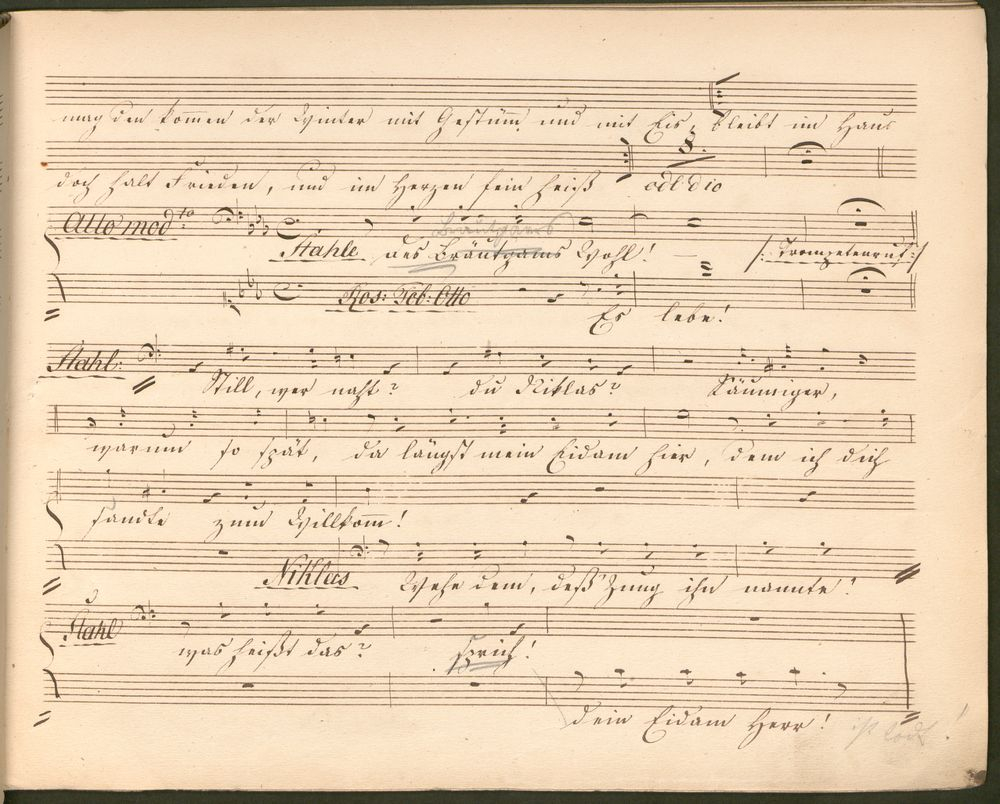 mag den kommen der Winter mit Gestürm und mit Eis, bleibt im Haus
doch halt Frieden, und im Herzen sein heiß
Allo modto
Stahl: des Bräutgams Wohl! /: Trompetenruf :/
Ros: Tob: Otto
Es lebe!
Stahl: Still, wer naht? du Niklas? Säumiger,
warum so spät, da längst mein Eidam hier, dem ich dich
sandte zum Willkomm!
Niklas Wehe dem, deß' Zung ihn nannte!
Stahl was heißt das? sprich!
dein Eidam Herr! ist todt!